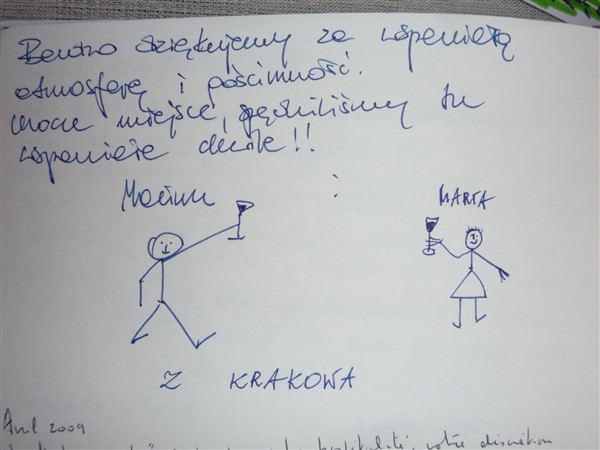 Bardzo dziękujemy za wspaniałą
atmosferę i gościnność.
Urocze miejsce, spędziliśmy tu
wspaniałe chwile!!
i MARTA
Z KRAKOWA
Avril 2009
votre discrétion